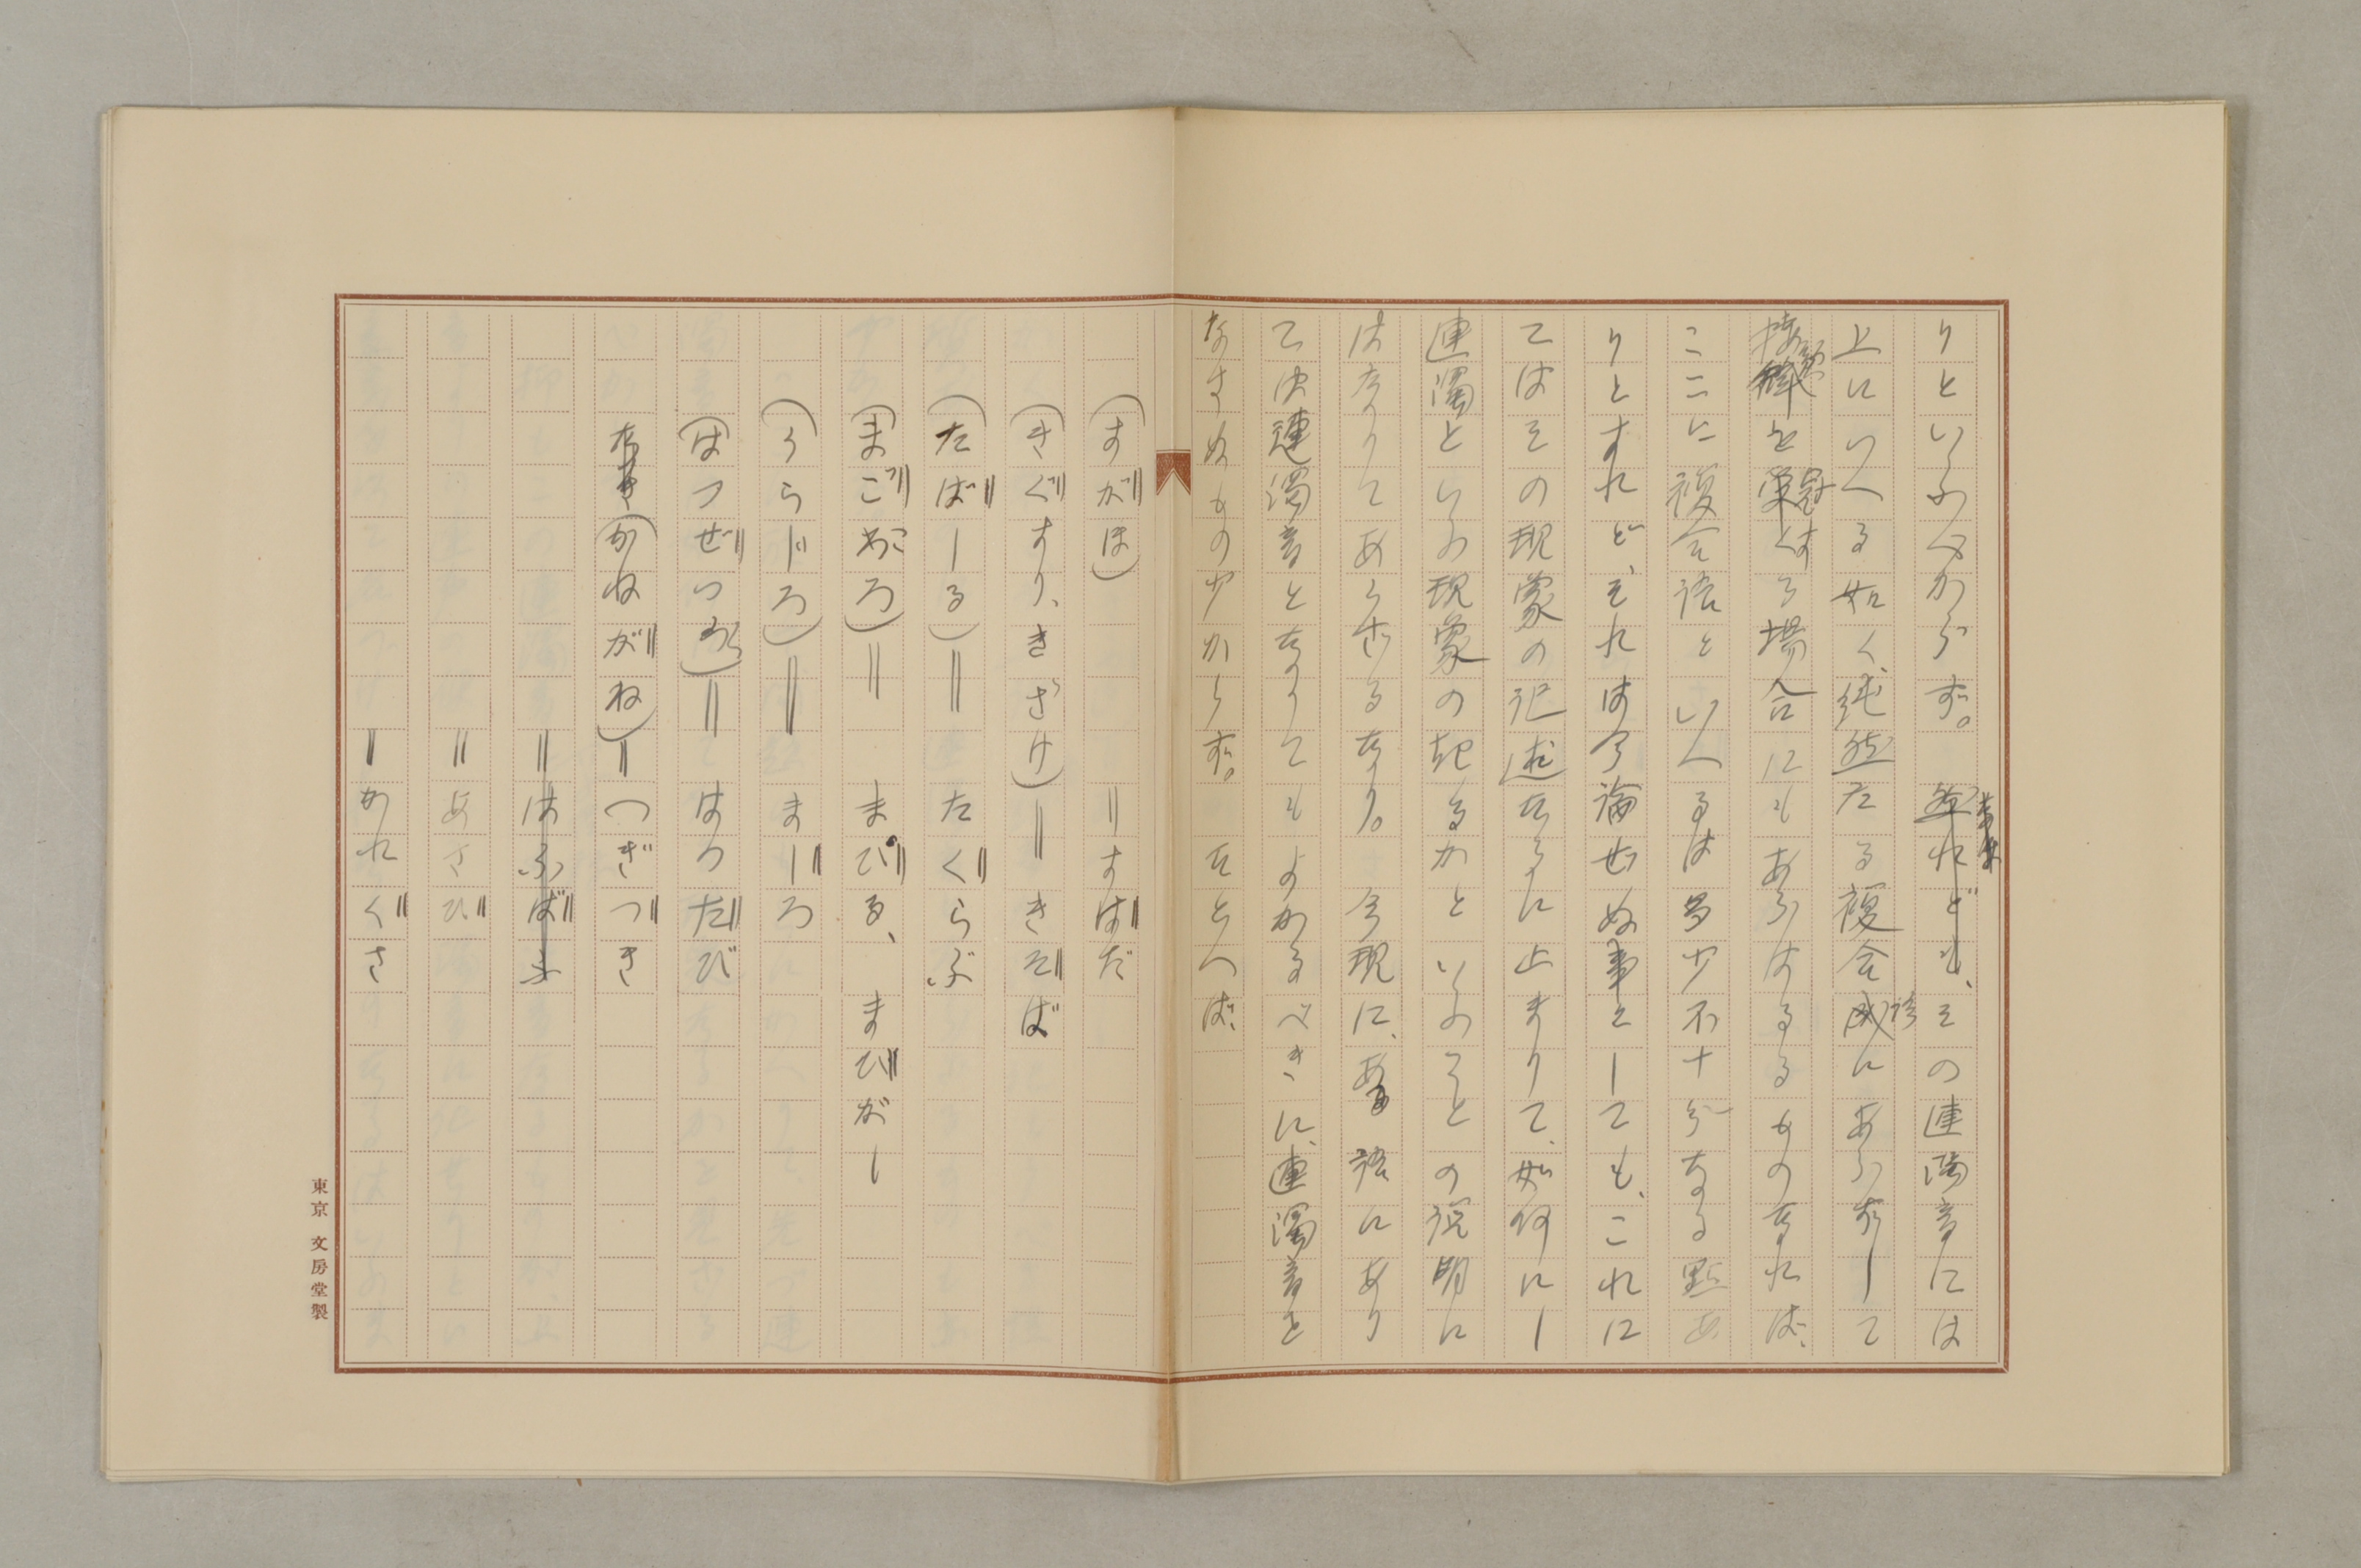 りといふべからず。その連濁音には
上にいへる如く、純然たる複合語にあらずして
接頭辞を冠する場合にもあらはるるものなれば、
ここに複合語といへるは多少不十分なる點あ
りとすれど、それは今論ぜぬ事としても、これに
てはその現象の記述なるに止まりて、如何にし
連濁といふ現象の起るかといふことの説明に
はなりてあらざるなり。今現に、ある語にあり
ては連濁音となりてもよかるべきに、連濁音を
なさぬもの少からず。たとへば、
(すがほ)＝すばだ
(きぐすり、きざけ)＝きそば
(たばしる)＝たぐらぶ
(まごころ)＝まぴる、まびがし
(うらじろ)＝まじろ
(はつぜつ)＝はつだび
(かねがね)＝つぎづき
＝はふばふ
＝あさび
＝かれぐさ
東京 文房堂製